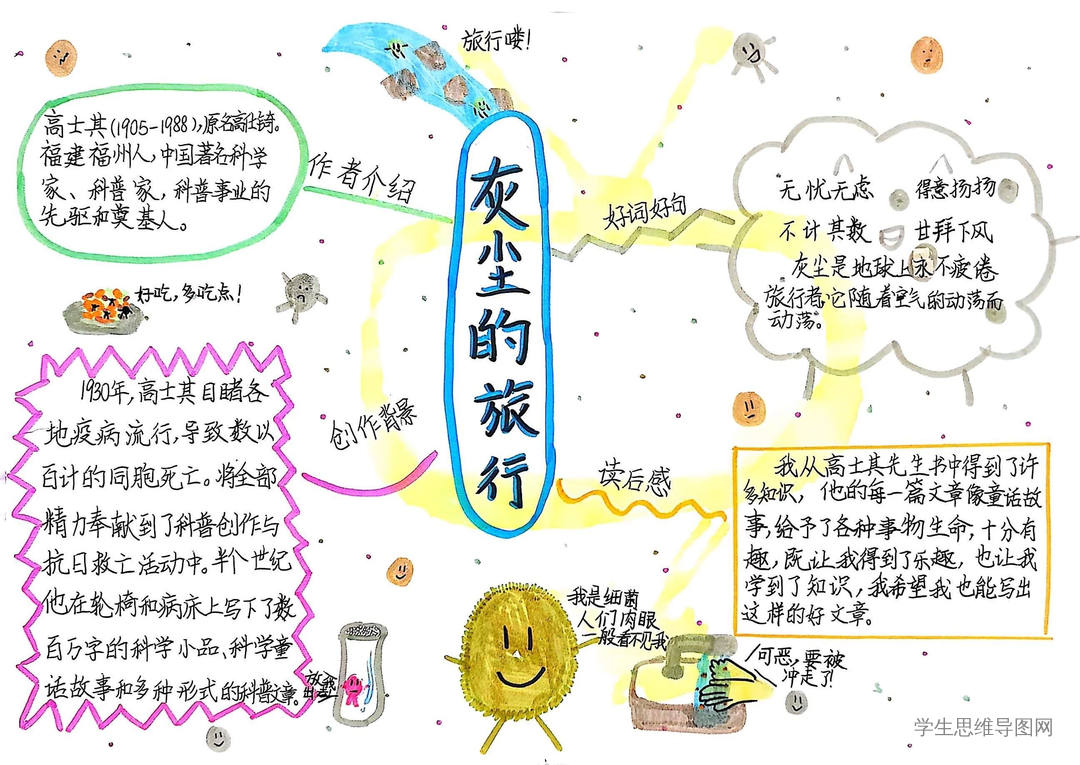 旅行喽!
灰尘的旅行
作者介绍
高士其(1905-1988),原名高仕錡。
福建福州人,中国著名科学
家、科普家,科普事业的
先驱和奠基人。
好词好句
无忧无虑 得意扬扬
不计其数 甘拜下风
灰尘是地球上永不疲倦
旅行者,它随着空气的动荡而
动荡。
好吃,多吃点!
创作背景
1930年,高士其目睹各
地疫病流行,导致数以
百计的同胞死亡。将全部
精力奉献到了科普创作与
抗日救亡活动中。半个世纪
他在轮椅和病床上写下了数
百万字的科学小品、科学童
话故事和多种形式的科普文章。
读后感
我从高士其先生书中得到了许
多知识,他的每一篇文章像童话故
事,给予了各种事物生命,十分有
趣,既让我得到了乐趣,也让我
学到了知识,我希望我也能写出
这样的好文章。
放我
出去
我是细菌
人们肉眼
一般看不见我
可恶,要被
冲走了!
学生思维导图网